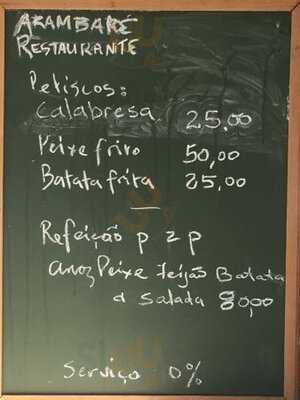 ARAMBARÉ
RESTAURANTE
Petiscos:
Calabresa 25,00
Peixe frito 50,00
Batata frita 25,00
Refeição p 2 p
arroz Peixe Feijão Batata
e salada 80,00
Serviço 0%